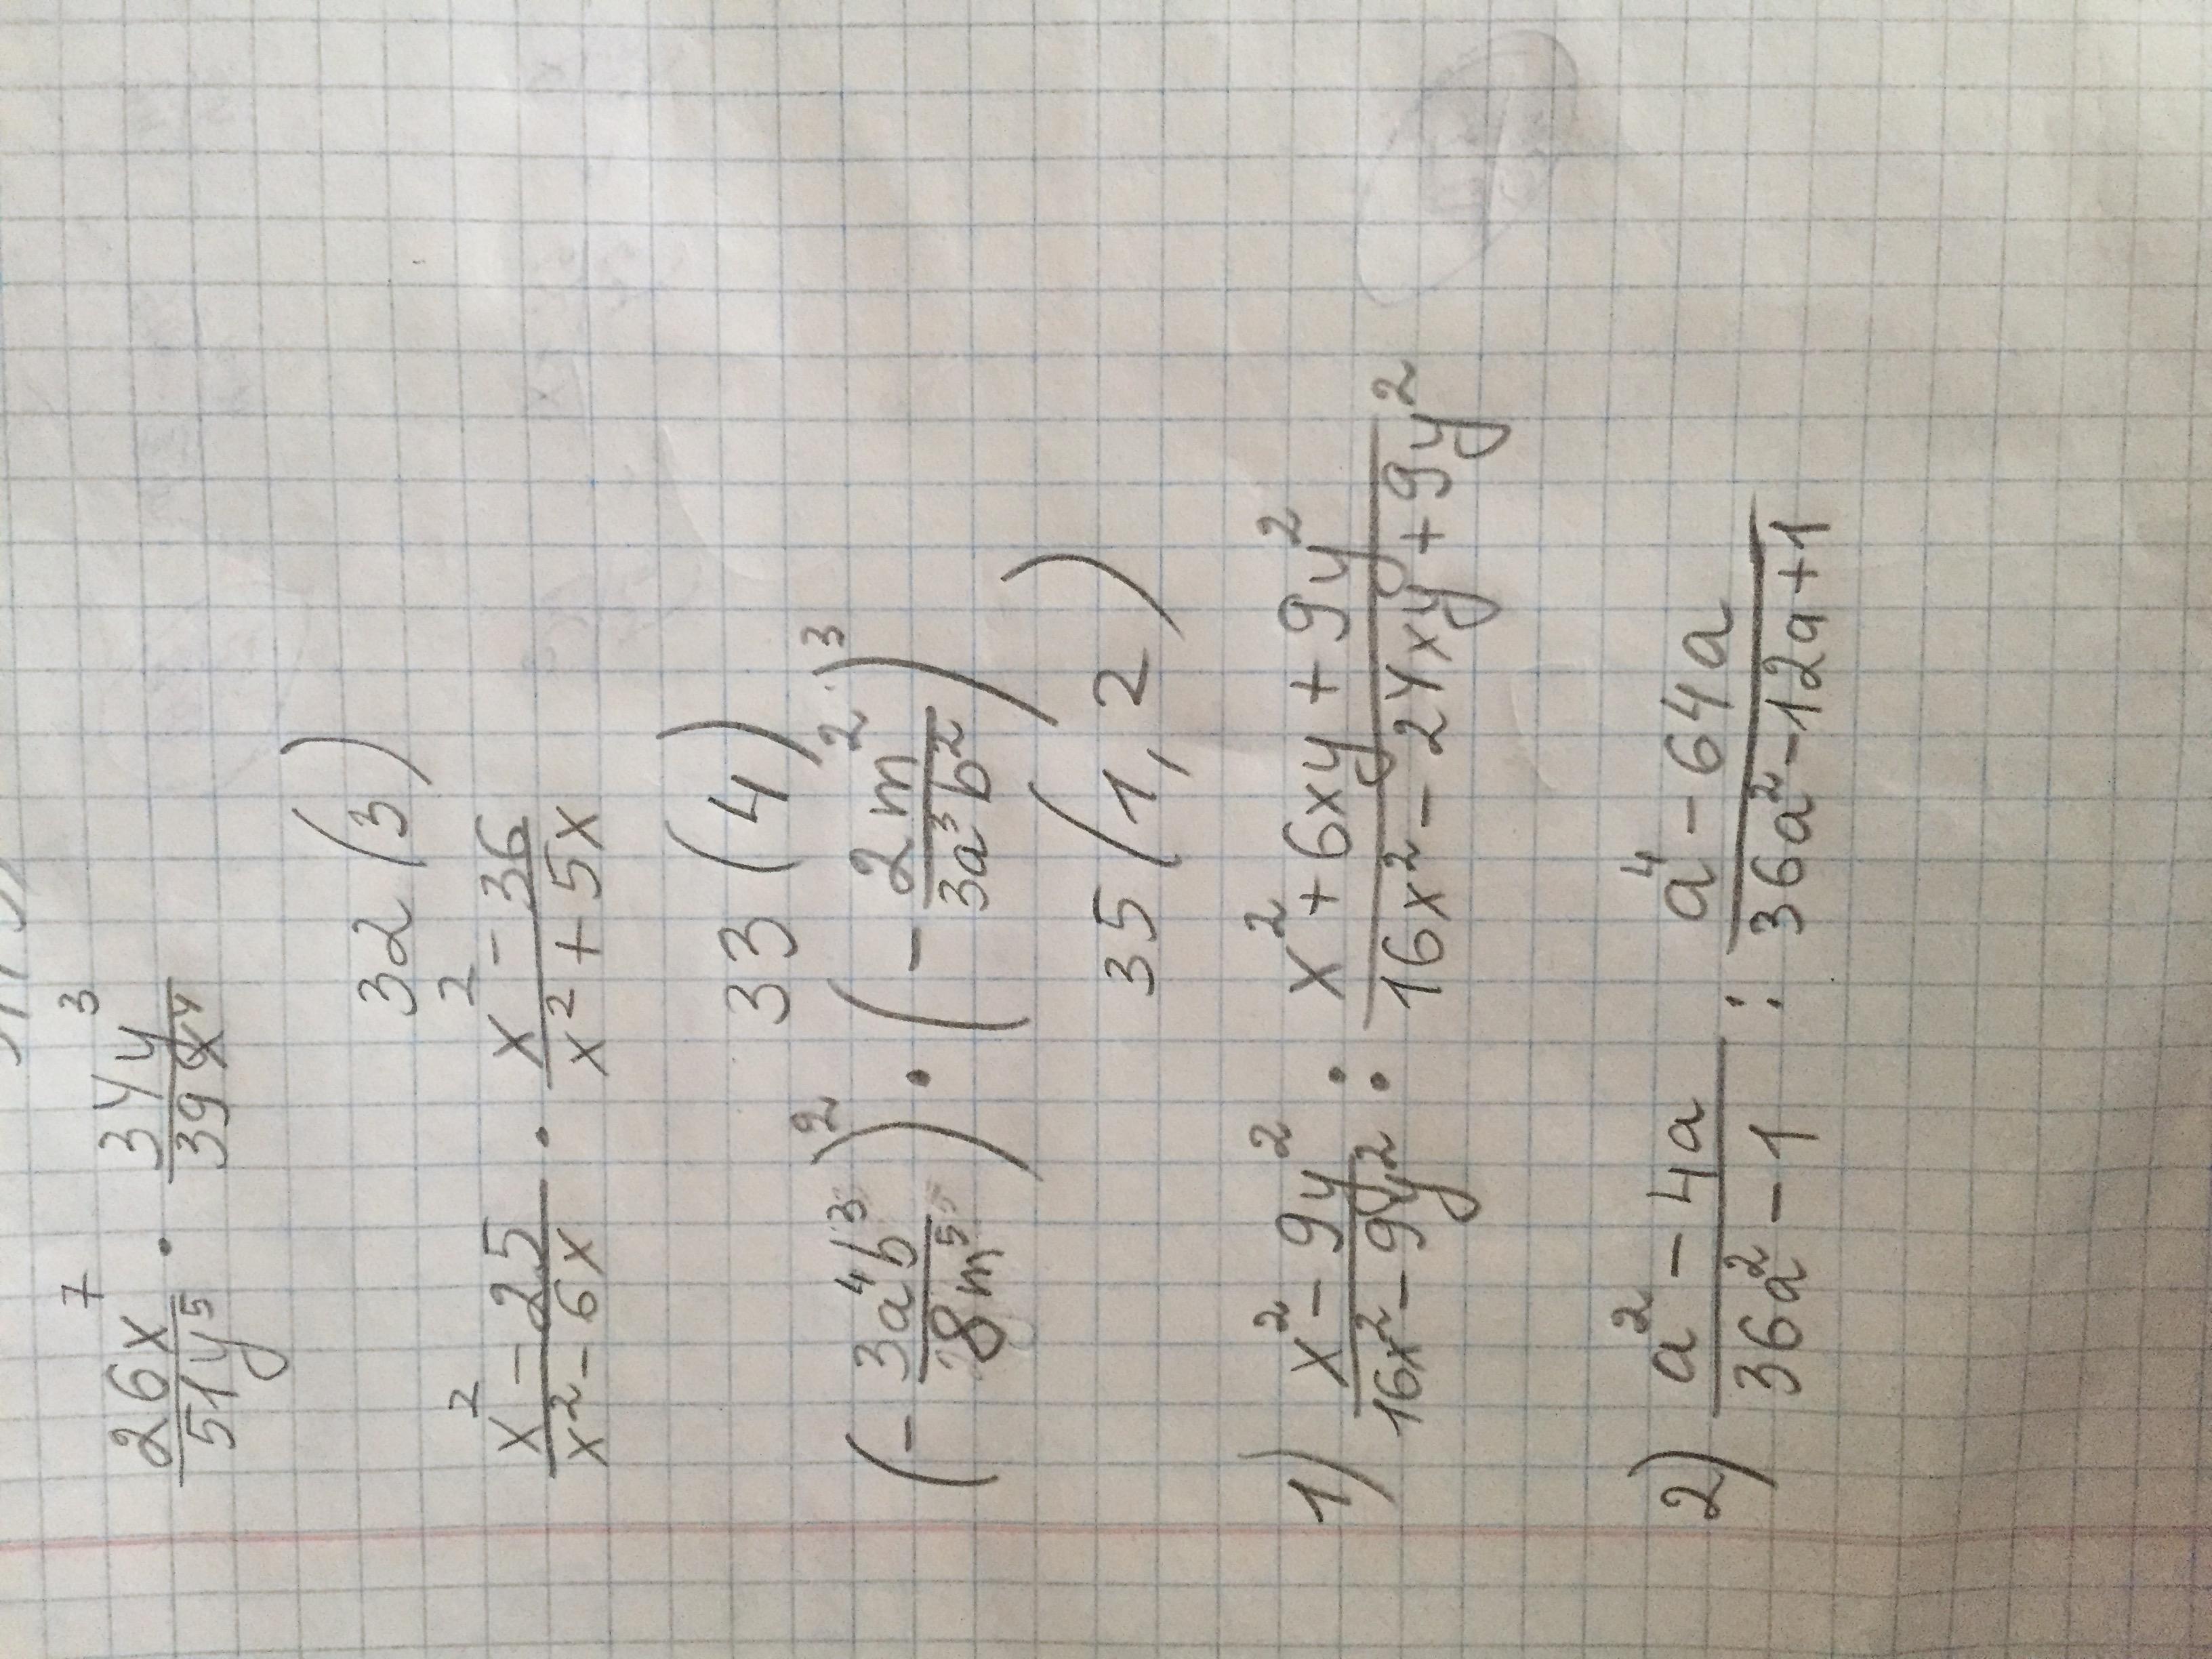 26x⁷/51y⁵ · 34y³/39x⁴
32 (3)
x²-25/x²-6x · x²-36/x²+5x
33 (4)
(-3a⁴b³/8m⁵)² · (-2m²/3a³b²)³
35 (1, 2)
1) x²-9y²/16x²-9y² : x²+6xy+9y²/16x²-24xy+9y²
2) a²-4a/36a²-1 : a⁴-64a/36a²-12a+1